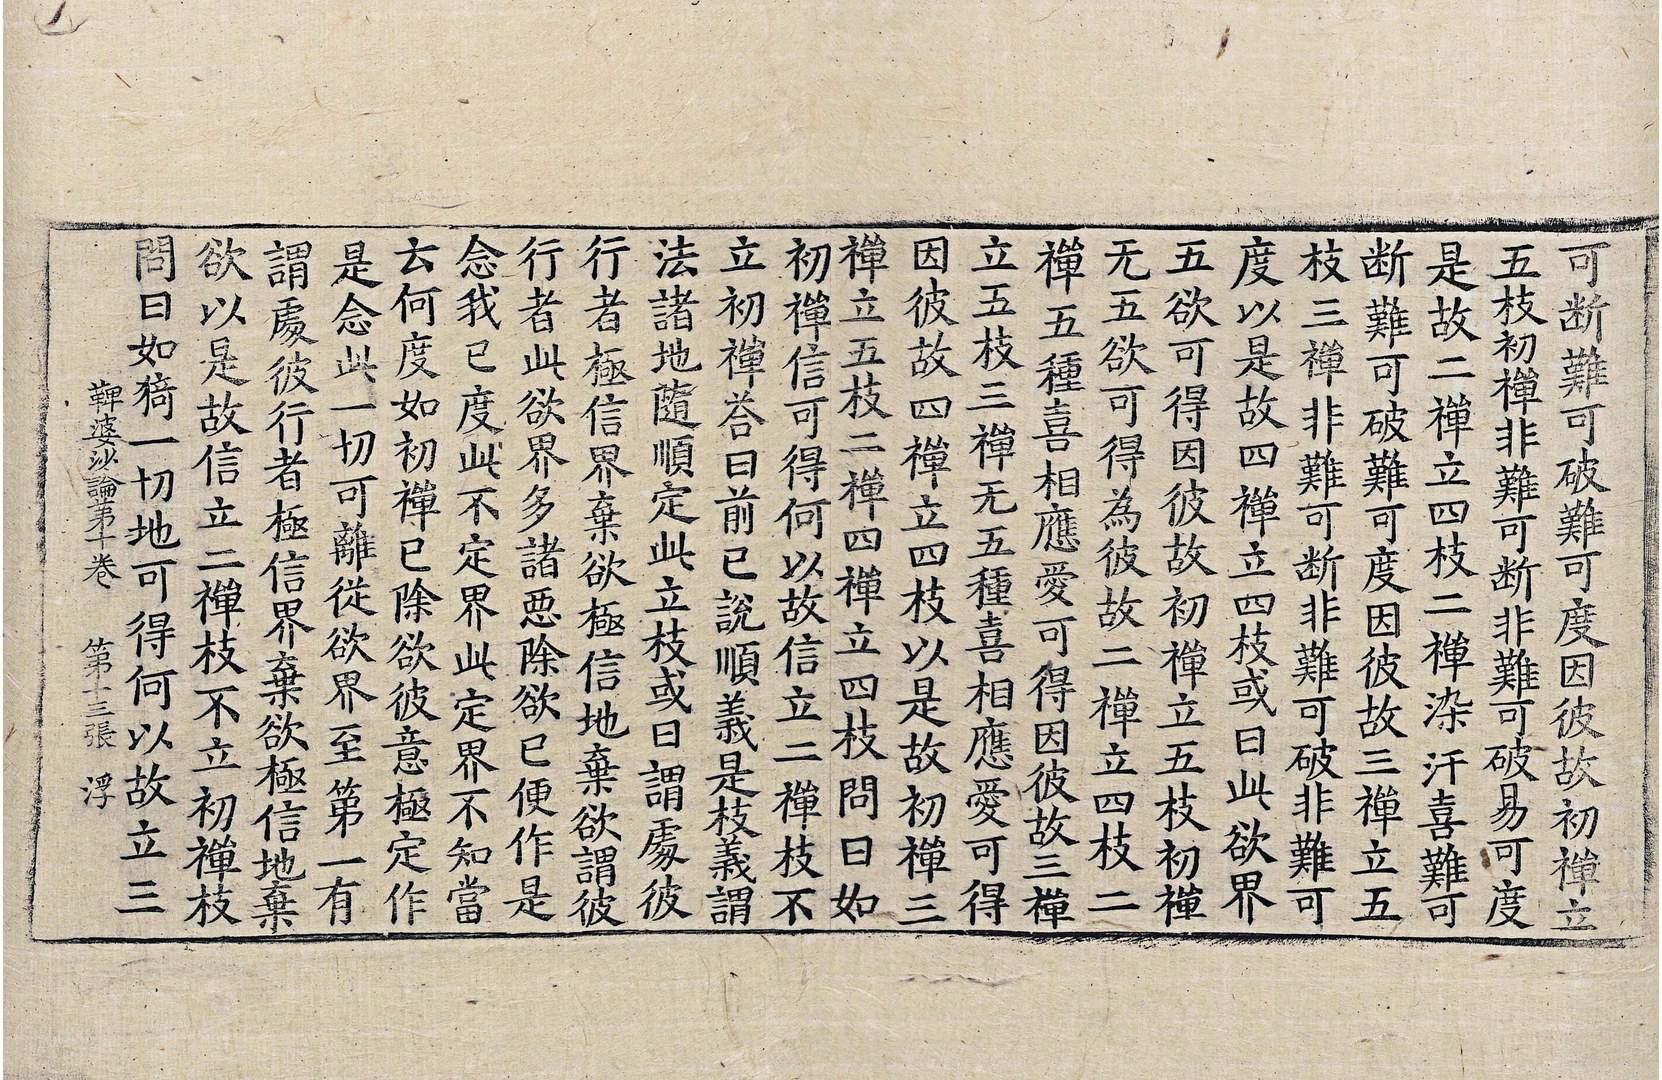 可断難可破難可度因彼故初禪立
五枝初禪非難可断非難可破易可度
是故二禪立四枝二禪染汙喜難可
断難可破難可度因彼故三禪立五
枝三禪非難可断非難可破非難可
度以是故四禪立四枝或曰此欲界
五欲可得因彼故初禪立五枝初禪
无五欲可得為彼故二禪立四枝二
禪五種喜相應愛可得因彼故三禪
立五枝三禪无五種喜相應愛可得
因彼故四禪立四枝以是故初禪三
禪立五枝二禪四禪立四枝問曰如
初禪信可得何以故信立二禪枝不
立初禪荅曰前已說順義是枝義謂
法諸地隨順定此立枝或曰謂處彼
行者極信界棄欲極信地棄欲謂彼
行者此欲界多諸惡除欲已便作是
念我已度此不定界此定界不知當
云何度如初禪已除欲彼意極定作
是念此一切可離從欲界至第一有
謂處彼行者極信界棄欲極信地棄
欲以是故信立二禪枝不立初禪枝
問曰如猗一切地可得何以故立三
鞞婆沙論第十卷 第十三張 浮